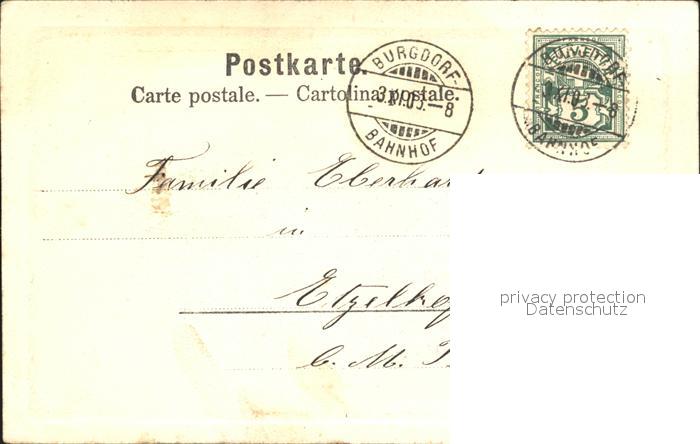 Postkarte.
Carte postale. — Cartolina postale.
BURGDORF-
3.XI.05.-8
BAHNHOF
5
BAHNHOF
Familie Eberhar
in
Etzelko
b. M.
privacy protection
Datenschutz